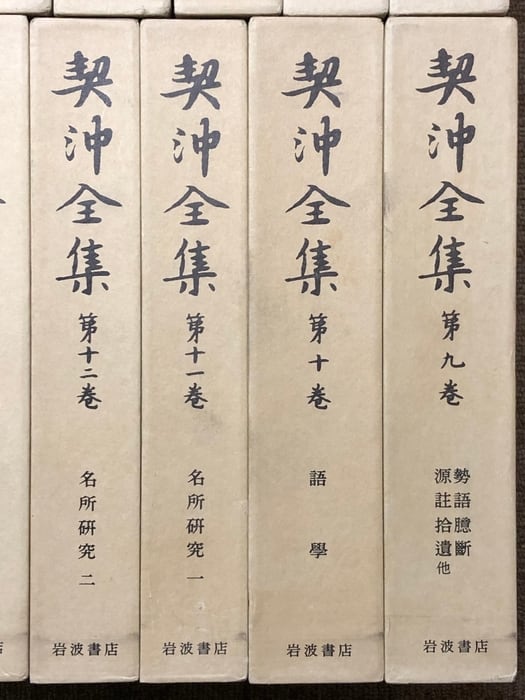 契沖全集
第九巻
勢語臆斷
源註拾遺他
岩波書店
契沖全集
第十巻
語學
岩波書店
契沖全集
第十一巻
名所研究 一
岩波書店
契沖全集
第十二巻
名所研究 二
岩波書店